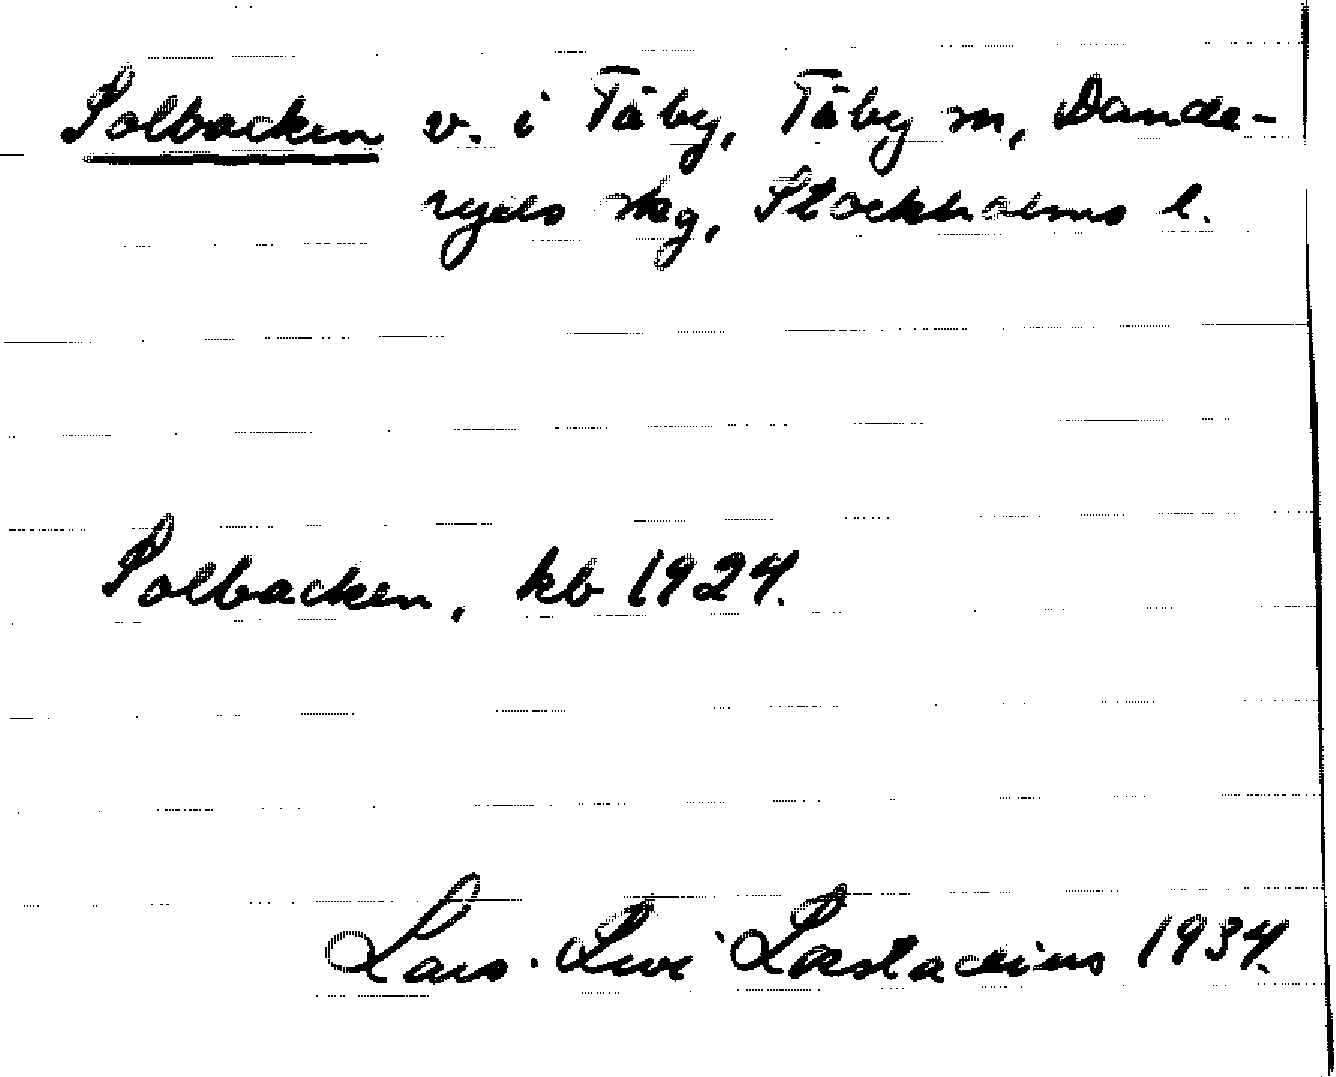 Solbacken v. i Täby, Täby sn, Dande-
ryds skg, Stockholms l.
Solbacken, kb 1924.
Lars-Levi Læstadius 1934.